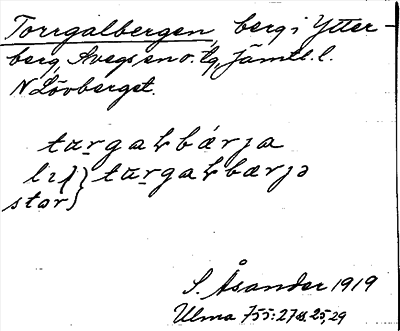 Torrgålbergen, berg i Ytter-
berg, Svegs sn o. tg, Jämtl. l.
N Lövberget.
targaɫbǽrja
lisl } targaɫbærjə
stor }
S. Åsander 1919
Ulma 755:27 s. 25, 29